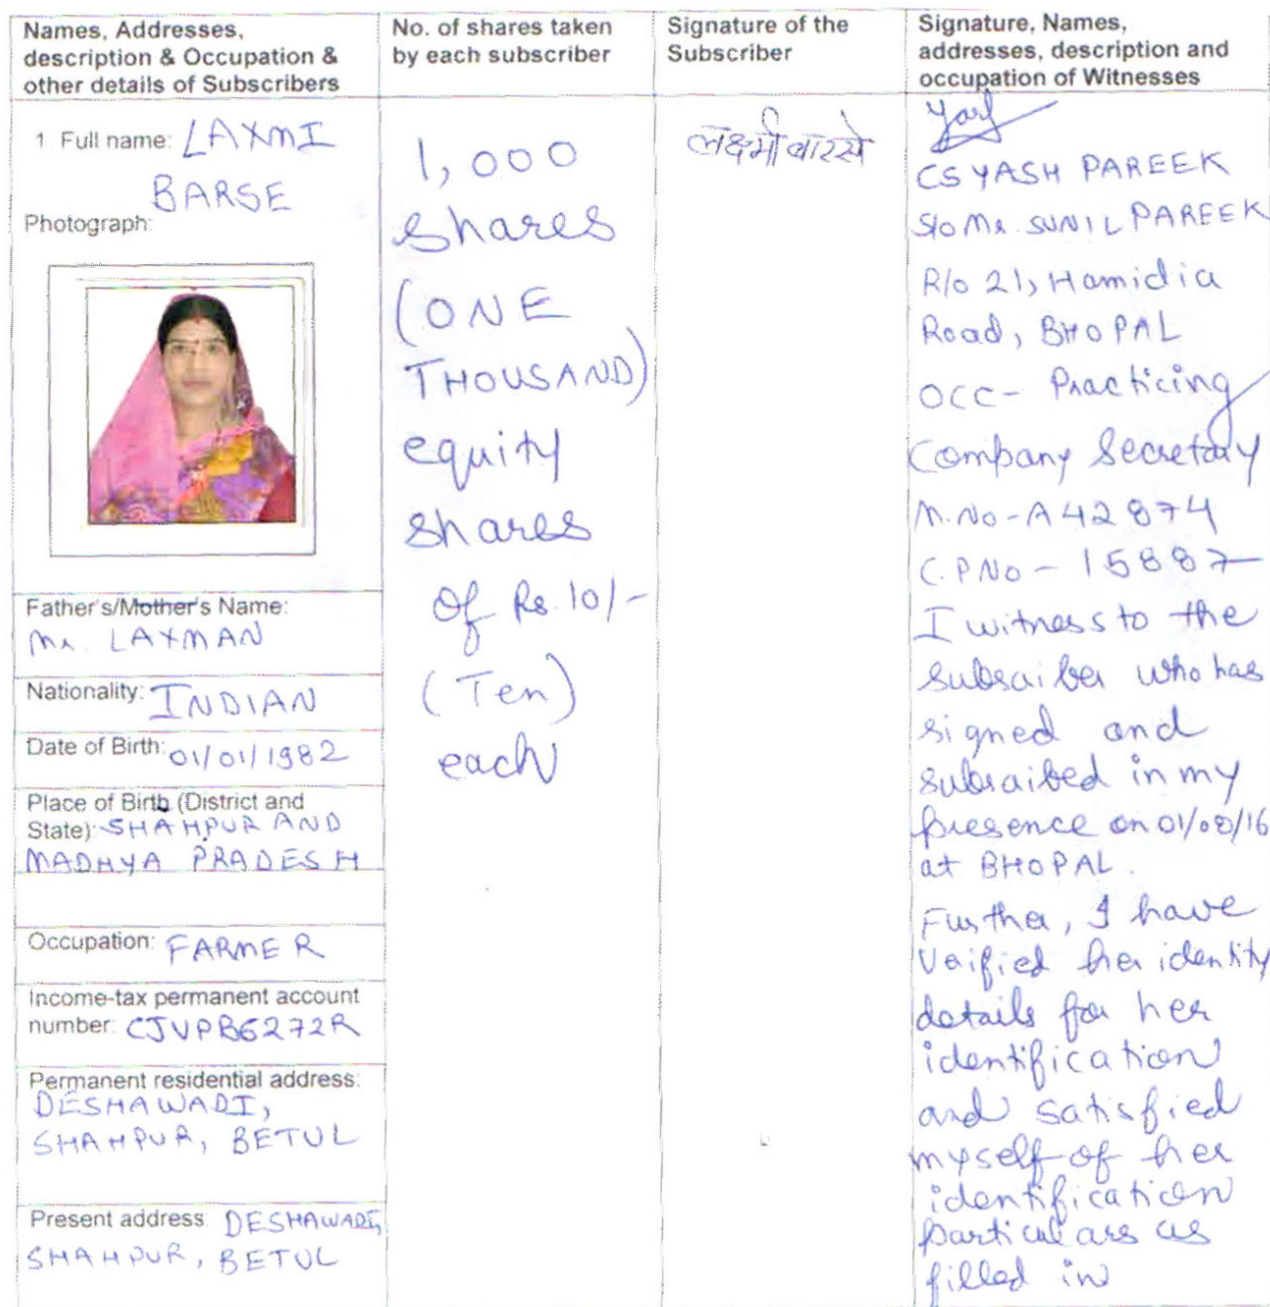 Names, Addresses,
description & Occupation &
other details of Subscribers
No. of shares taken
by each subscriber
Signature of the
Subscriber
Signature, Names,
addresses, description and
occupation of Witnesses
1 Full name: LAXMI
BARSE
Photograph:
Father's/Mother's Name:
Mr. LAXMAN
Nationality: INDIAN
Date of Birth: 01/01/1982
Place of Birth (District and
State): SHAHPUR AND
MADHYA PRADESH
Occupation: FARMER
Income-tax permanent account
number: CJVPB6272R
Permanent residential address:
DESHAWADI,
SHAHPUR, BETUL
Present address: DESHAWADI,
SHAHPUR, BETUL
1,000
shares
(ONE
THOUSAND)
equity
shares
of Rs. 10/-
(Ten)
each
लक्ष्मी बारसे
CS YASH PAREEK
S/o Mr. SUNIL PAREEK
R/o 21, Hamidia
Road, BHOPAL
OCC- Practicing
Company Secretary
M.No-A42874
C.P No - 15887
I witness to the
subscriber who has
signed and
subscribed in my
presence on 01/08/16
at BHOPAL.
Further, I have
verified her identity
details for her
identification
and satisfied
myself of her
identification
particulars as
filled in